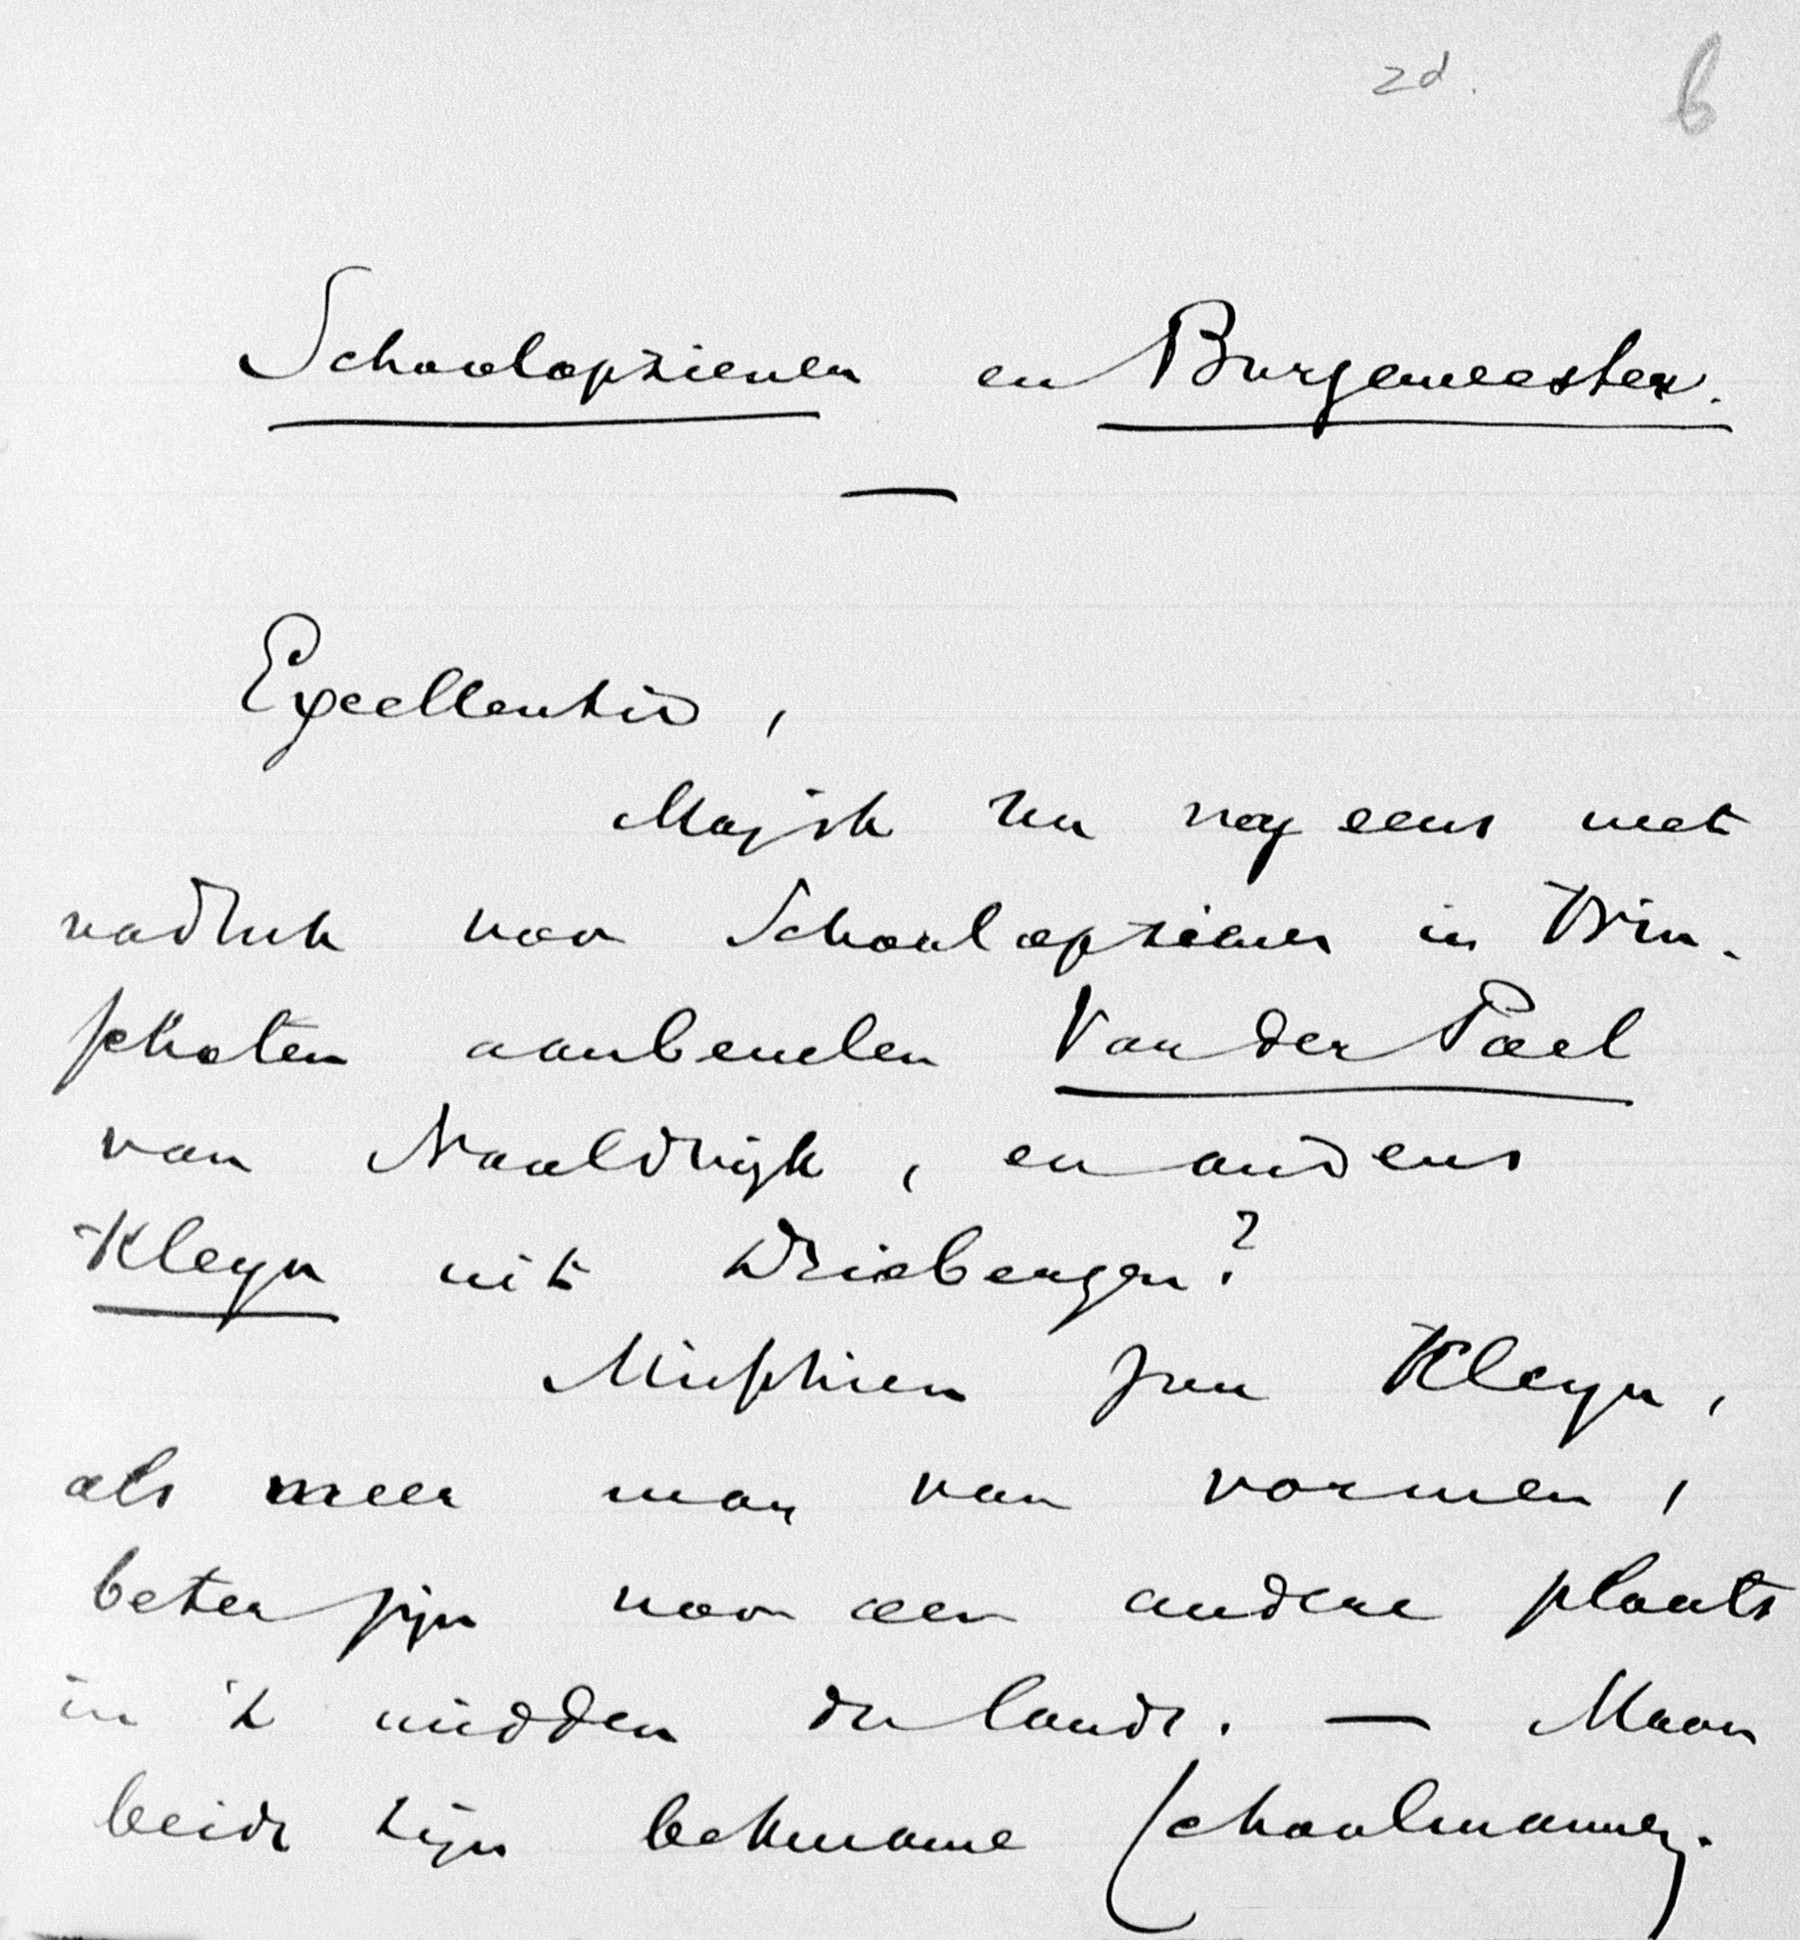 zd. 6
Schoolopziener en Burgemeester.
Excellentie,
Mag ik nu nog eens met
nadruk voor Schoolopziener in Win-
schoten aanbevelen Van der Poel
van Naaldwijk, en anders
Kleyn uit Driebergen?
Misschien zou Kleyn,
als meer man van vormen,
beter zijn voor een andere plaats
in 't midden des lands. — Maar
beide zijn bekwame schoolmannen.